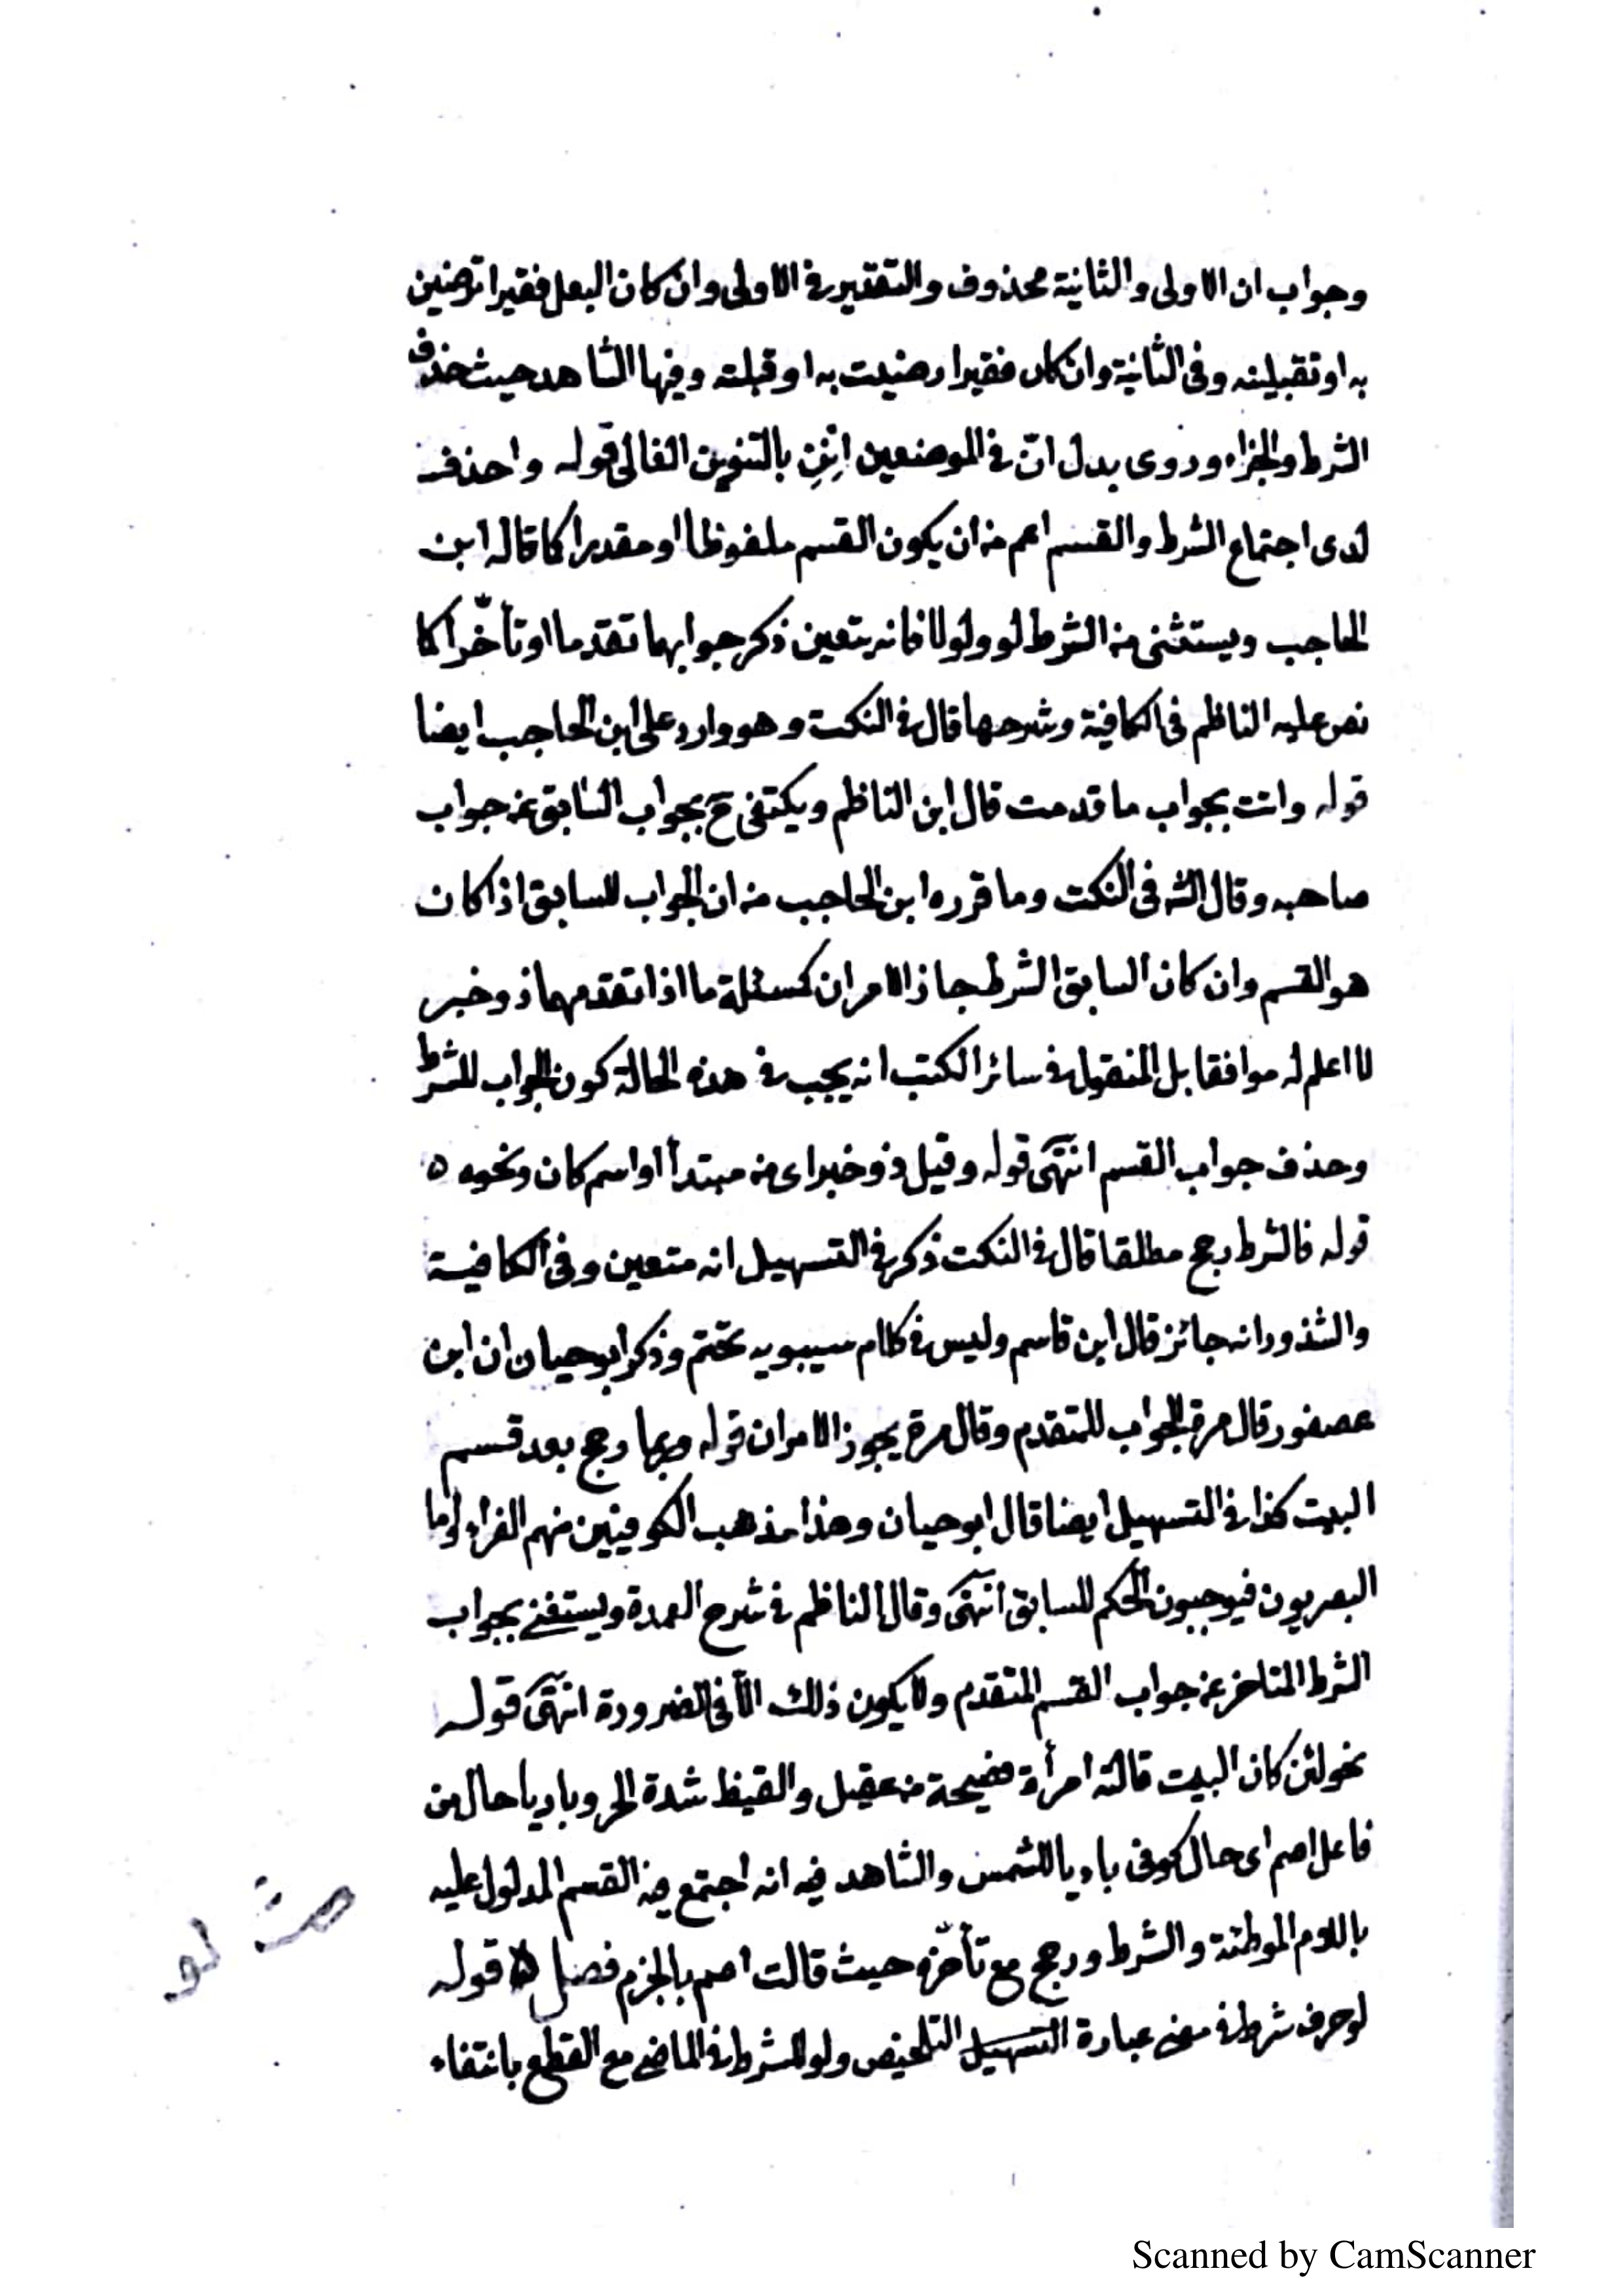 وجواب ان الاولى والثانية محذوف والتقدير في الاولى وان كان البعل فقيرا ترضين
به او تقبلينه وفى الثانية وان كان فقيرا رضيت به او قبلته وفيها الشاهد حيث حذف
الشرط والجزاء وروى بدل انّ في الموضعين اِنِنْ بالتنوين الغالى قوله واحذف
لدى اجتماع الشرط والقسم اعم من ان يكون القسم ملفوظا او مقدرا كما قاله ابن
الحاجب ويستثنى من الشرط لو ولولا فانه يتعين ذكر جوابهما تقدما او تأخّرا كما
نص عليه الناظم فى الكافية وشرحها قال في النكت وهو وارد على ابن الحاجب ايضا
قوله وانت بجواب ما قدمت قال ابن الناظم ويكتفى ح بجواب السابق عن جواب
صاحبه وقال الشه فى النكت وما قرره ابن الحاجب من ان الجواب للسابق اذا كان
هو القسم وان كان السابق الشرط جاز الامران كمسئلة ما اذا تقدمهما ذو خبر
لا اعلم له موافقا بل المنقول في سائر الكتب انه يجب في هذه الحالة كون الجواب للشرط
وحذف جواب القسم انتهى قوله وقيل ذو خبر اى من مبتدأ او اسم كان ونحوه ه
قوله فالشرط رجح مطلقا قال في النكت ذكر في التسهيل انه متعين وفى الكافية
والشذور انه جائز قال ابن قاسم وليس في كلام سيبويه تحتم وذكر ابو حيان ان ابن
عصفور قال مرة الجواب للمتقدم وقال مرة يجوز الامران قوله وربما رجح بعد قسم
البيت كذا في التسهيل ايضا قال ابو حيان وهذا مذهب الكوفيين منهم الفراء واما
البصريون فيوجبون الحكم للسابق انتهى وقال الناظم في شرح العمدة ويستغنى بجواب
الشرط المتاخر عن جواب القسم المتقدم ولا يكون ذلك الّا فى الضرورة انتهى قوله
نحو لئن كان البيت قالته امرأة فصيحة من عقيل والقيظ شدة الحر وباديا حال من
فاعل اصم اى حال كونى باديا للشمس والشاهد فيه انه اجتمع فيه القسم المدلول عليه
باللام الموطئة والشرط ورجح مع تأخّره حيث قالت اصم بالجزم فصل ه قوله
لو حرف شرط في معنى عبارة التسهيل التلخيص ولو للشرط في الماضى مع القطع بانتفاء
لو
Scanned by CamScanner